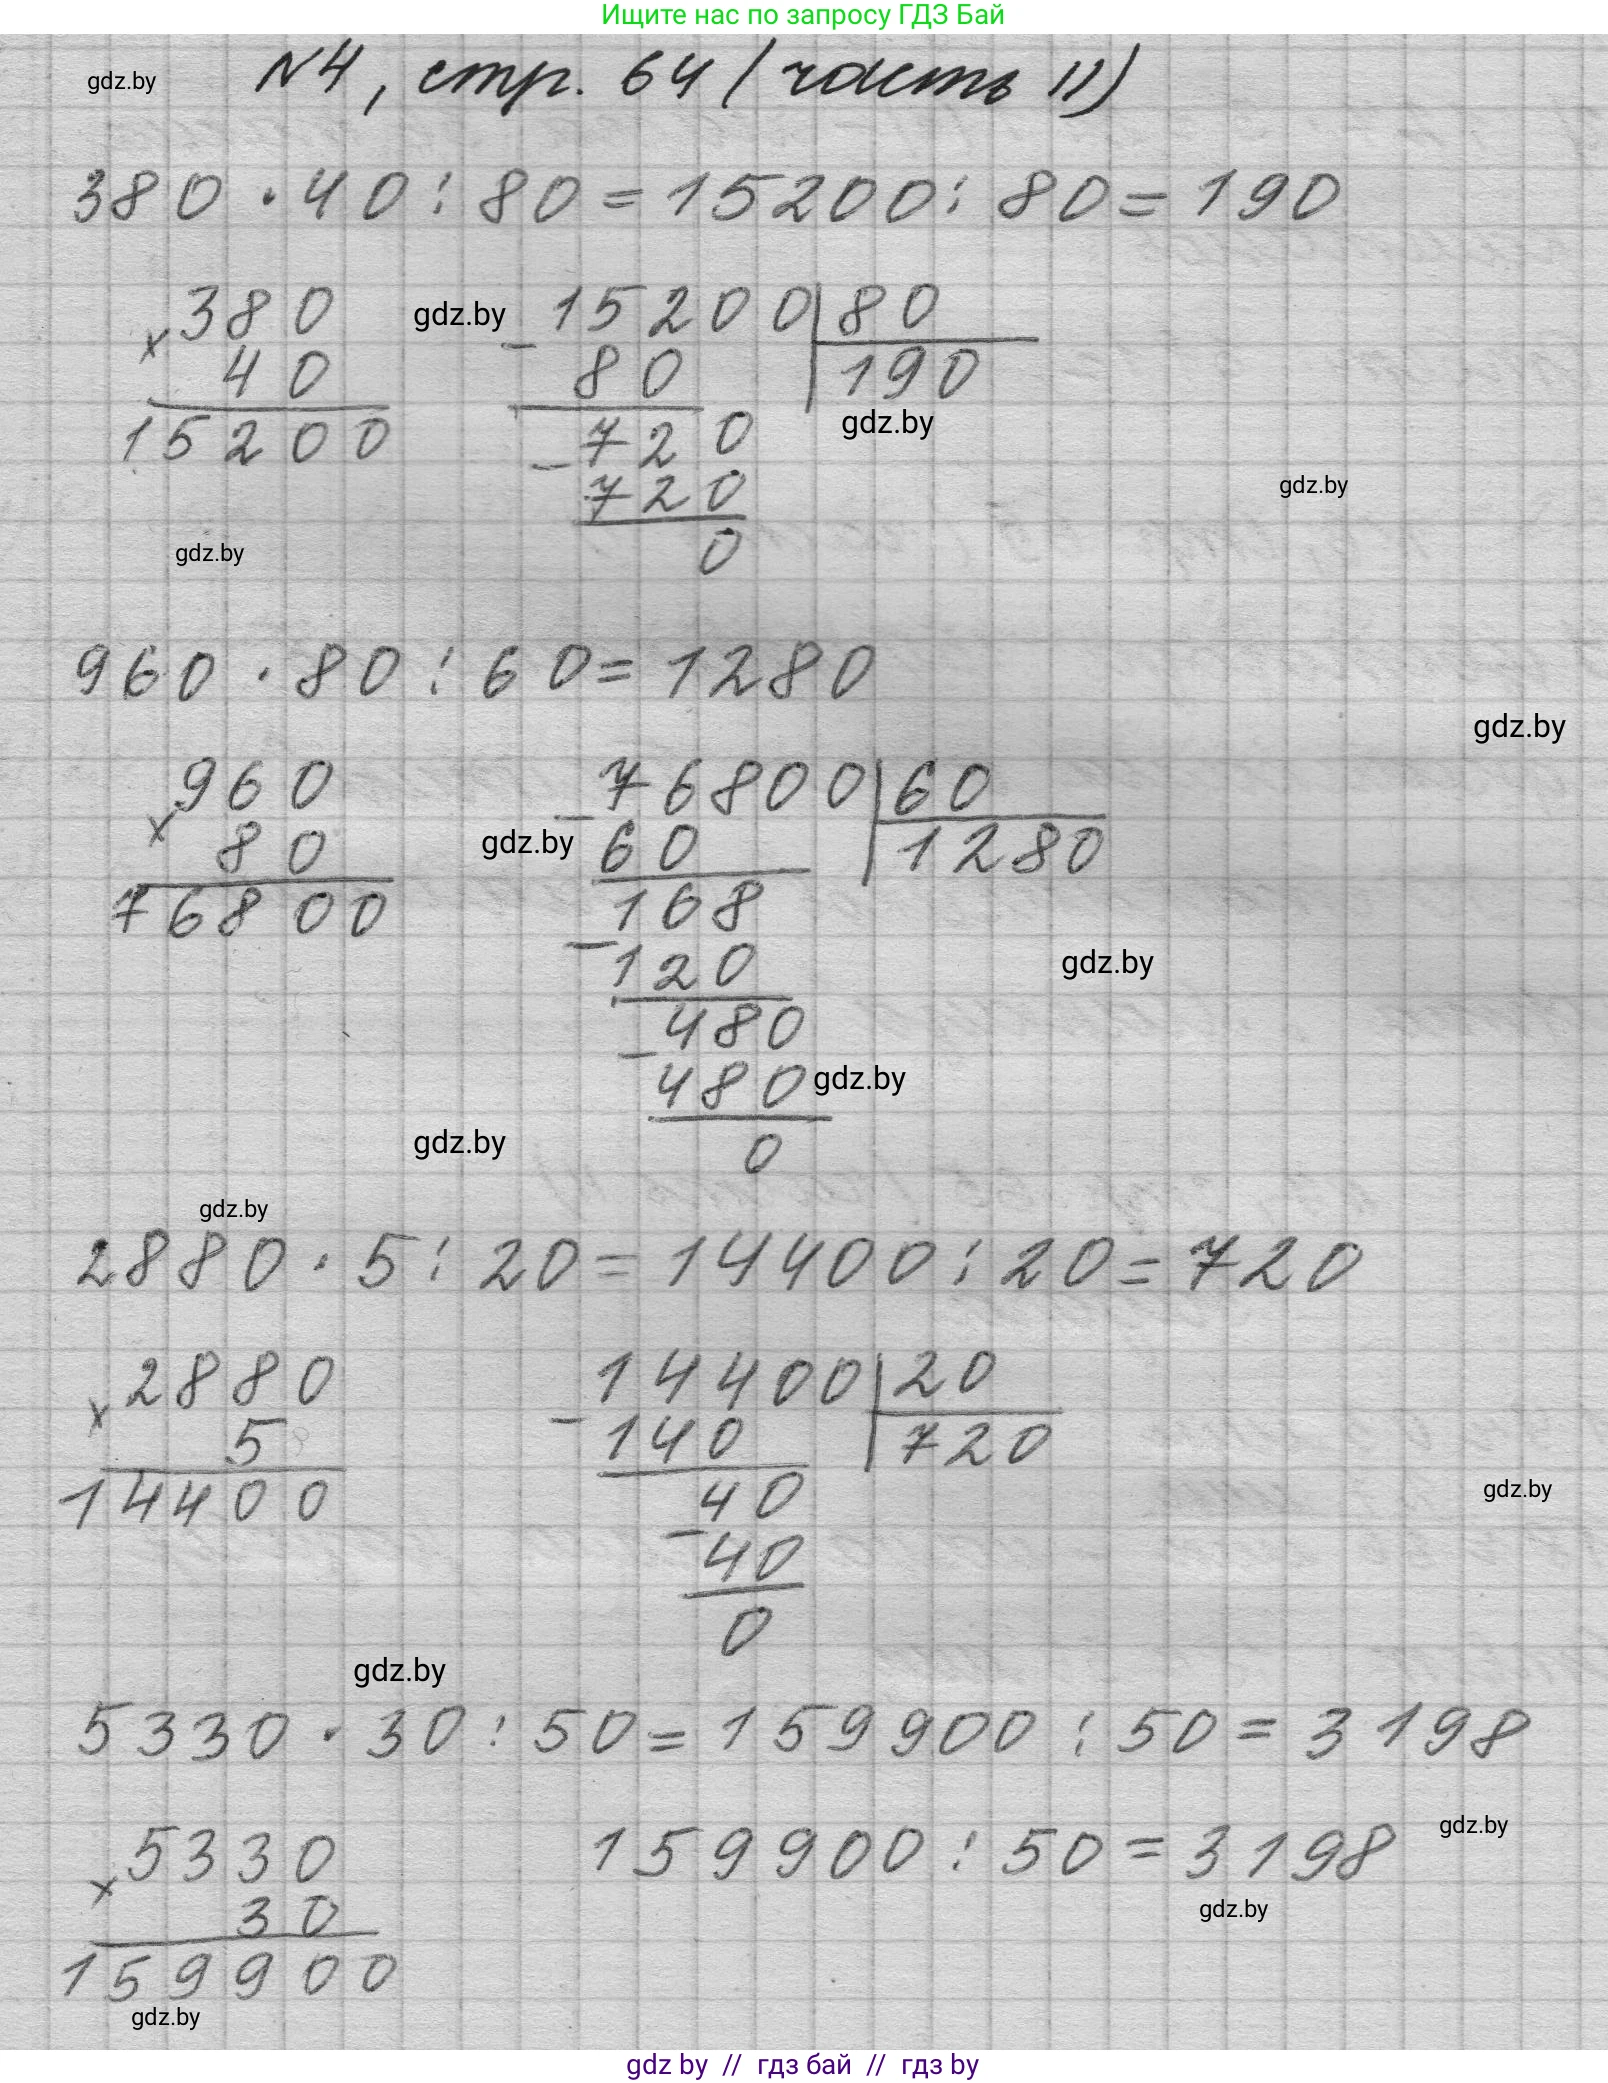 Ищите нас по запросу ГДЗ Бай
gdz.by
№4, стр. 64 (часть II)
380 · 40 : 80 = 15200 : 80 = 190
380
× 40
15200
gdz.by
15200 | 80
− 80 | 190
gdz.by
720
− 720
0
gdz.by
gdz.by
960 · 80 : 60 = 1280
gdz.by
960
× 80
76800
gdz.by
76800 | 60
− 60 | 1280
168
− 120
gdz.by
480
− 480
gdz.by
0
gdz.by
gdz.by
2880 · 5 : 20 = 14400 : 20 = 720
2880
× 5
14400
14400 | 20
− 140 | 720
40
− 40
0
gdz.by
gdz.by
5330 · 30 : 50 = 159900 : 50 = 3198
5330
× 30
159900
159900 : 50 = 3198
gdz.by
gdz.by
gdz.by
gdz by // гдз бай // гдз by